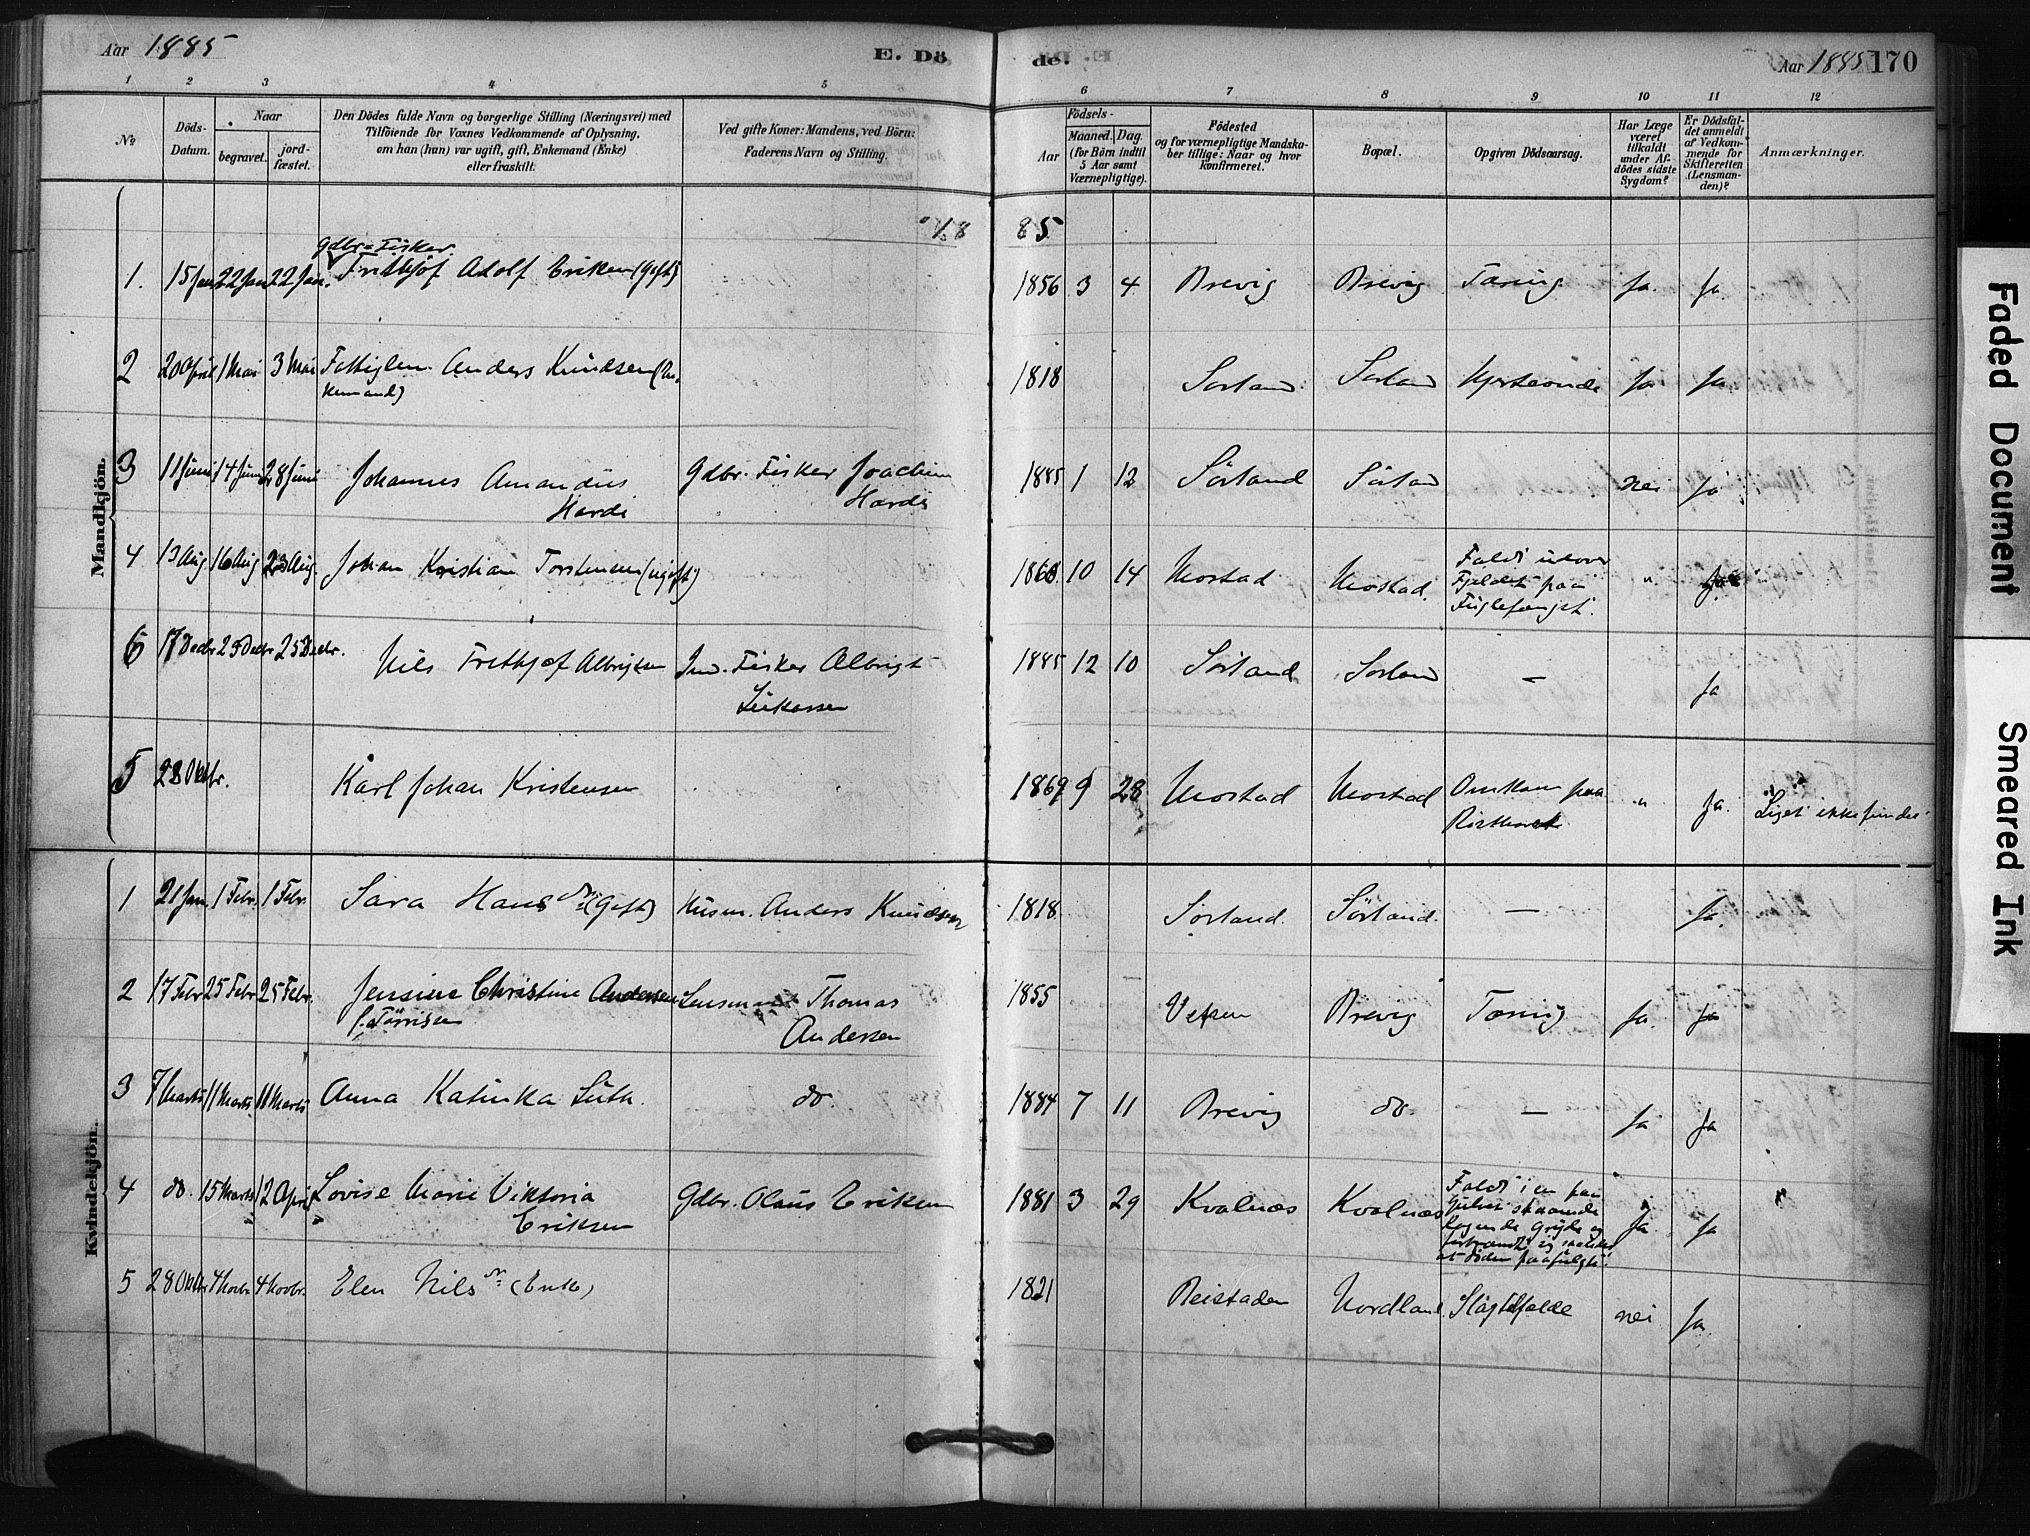 Aar 1885
E. Dö
de.
Aar 1885
170
1 2 3 4 5 6 7 8 9 10 11 12
No
Döds-Datum.
Naar
begravet.
jord-fæstet.
Den Dödes fulde Navn og borgerlige Stilling (Næringsvei) med
Tilföiende for Voxnes Vedkommende af Oplysning,
om han (hun) var ugift, gift, Enkemand (Enke)
eller fraskilt.
Ved gifte Koner: Mandens, ved Börn:
Faderens Navn og Stilling.
Födsels-
Aar
Maaned.
Dag.
(for Börn indtil
5 Aar samt
Værnepligtige).
Födested
og for værnepligtige Mandska-
ber tillige: Naar og hvor
konfirmeret.
Bopæl.
Opgiven Dödsaarsag.
Har Læge
været
tilkaldt
under Af-
dödes sidste
Sygdom?
Er Dödsfal-
det anmeldt
af Vedkom-
mende for
Skifteretten
(Lensman-
den)?
Anmærkninger.
Mandkjön.
18 85
Gdbr = Fisker
1. 15 Jan 22 Jan 22 Jan. Frithjof Adolf Eriksen (Gift) 1856 3 4 Brevig Brevig Tæring Ja. Ja.
2 20 April 1 Mai 3 Mai Fattiglem Anders Knudsen (En- 1818 Sørland Sørland Ja Ja.
kemand)
3 11 Juni 14 Juni 28 Juni Johannes Amandus Gdbr. Fisker Joachim 1885 1 12 Sörland Sörland nei Ja
Hardi Hardi
4 13 Aug 16 Aug 23 Aug. Johan Kristian Torstensen (ugift) 10 14 Mostad Mostad. Faldt udover " Ja
Fjeldet paa
Fuglefangst.
6 17 Decbr 25 Decbr 25 Decbr. Nils Frithjof Albrigtsen Ind. Fisker Albrigt 1885 12 10 Sörland Sørland — Ja
Lukassen
5 28 Oktbr. Karl Johan Kristensen 1869 9 28 Mostad Mostad Omkom paa " Ja. Liget ikke fundet
Rösthavet
Kvindekjön.
1 21 Jan. 1 Febr. 1 Febr. Sara Hansdr (Gift) Husm. Anders Knudsen 1818 Sørland. Sörland. — Ja.
2 17 Febr 25 Febr 25 Febr. Jensine Christine Andersen Lensmand Thomas 1855 Vefsen Brevig Tæring Ja. Ja
f. Tørrisen Andersen
3 7 Marts 11 Marts 11 Marts Anna Katinka Luth. do. 1884 7 11 Brevig do — Ja Ja
4 do. 15 Marts 12 April Lovise Marie Viktoria Gdbr. Olaus Eriksen 1881 3 29 Kvalnæs Kvalnæs Faldt i en paa Ja Ja
Eriksen Gulvet staaende
kogende Gryde og
forbrændte sig saaledes
at Döden paafulgte.
5 28 Oktbr 4 Novbr 4 Novbr. Elen Nilsdr (Enke) 1821 Reistaden Nordland Slagtilfælde nei Ja
Faded Document
Smeared Ink